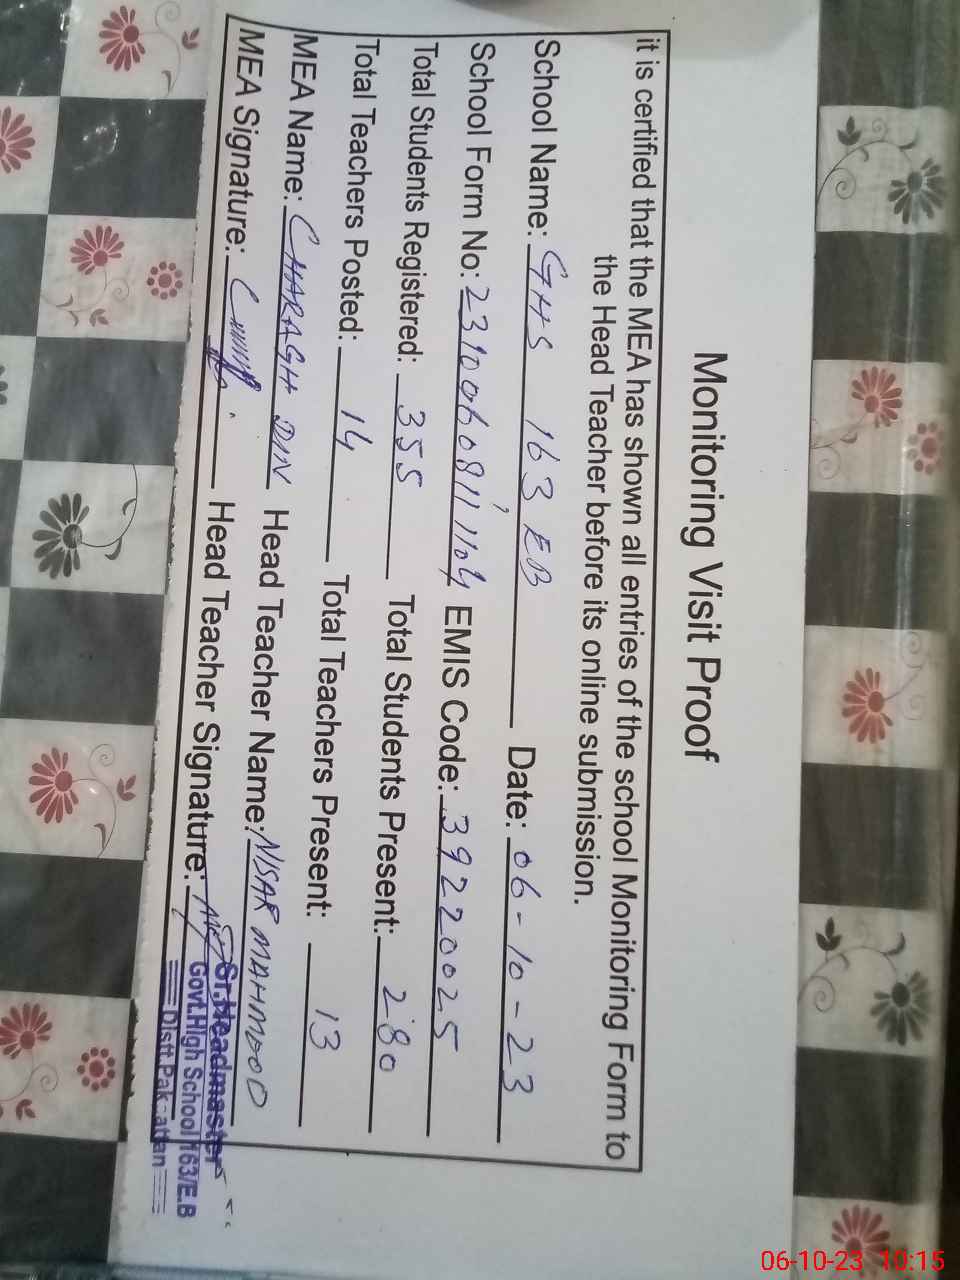 Monitoring Visit Proof
it is certified that the MEA has shown all entries of the school Monitoring Form to
the Head Teacher before its online submission.
School Name: GHS 163 EB Date: 06-10-23
School Form No: 23100608111104 EMIS Code: 39220025
Total Students Registered: 355 Total Students Present: 280
Total Teachers Posted: 14 Total Teachers Present: 13
MEA Name: CHARAGH DIN Head Teacher Name: NISAR MAHMOOD
MEA Signature: Head Teacher Signature:
Sr.Headmaster
Govt.High School 163/E.B
Distt.Pakpattan
06-10-23 10:15